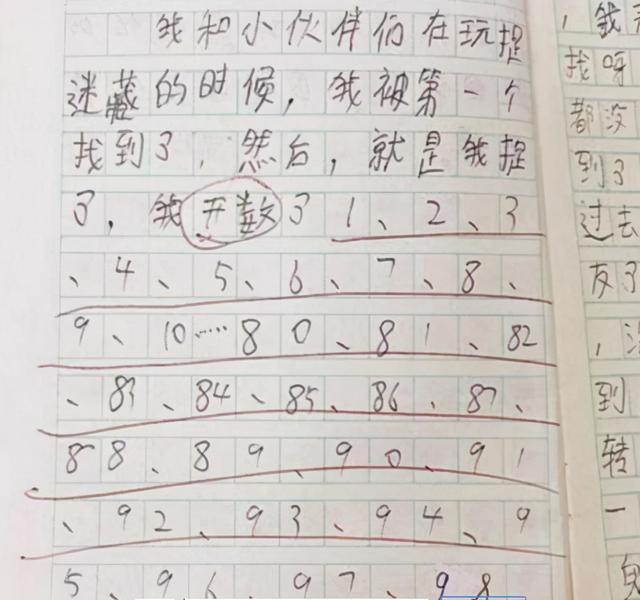 我和小伙伴们在玩捉
迷藏的时候，我被第一个
找到了，然后，就是我捉
了，我开数了1、2、3
、4、5、6、7、8、
9、10……80、81、82
、83、84、85、86、87、
88、89、90、91
、92、93、94、9
5、96、97、98
，我
找呀
都没
到了
过去
友了
，
到
转
一